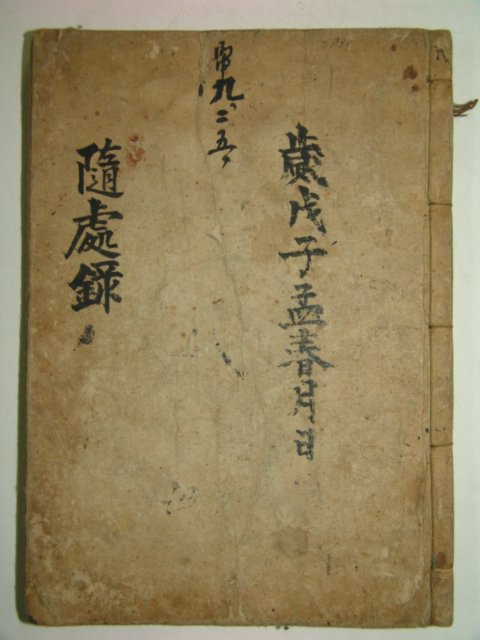 歲戊子孟春月日
九、二、五、
隨處錄